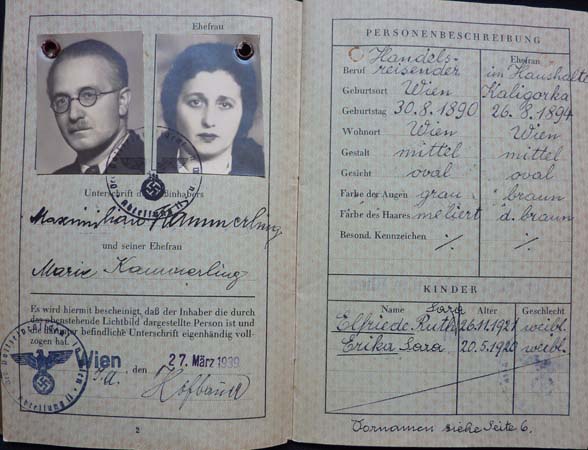 Ehefrau
Unterschrift des Paßinhabers
Maximilian Kammerling
und seiner Ehefrau
Marie Kammerling
Es wird hiermit bescheinigt, daß der Inhaber die durch
das obenstehende Lichtbild dargestellte Person ist und
die darunter befindliche Unterschrift eigenhändig voll-
zogen hat.
Wien, den 27. März 1939
2
PERSONENBESCHREIBUNG
Ehefrau
Beruf Handels-reisender im Haushalte
Geburtsort Wien Kaligorka
Geburtstag 30.8.1890 26.8.1894
Wohnort Wien Wien
Gestalt mittel mittel
Gesicht oval oval
Farbe der Augen grau braun
Farbe des Haares meliert d. braun
Besond. Kennzeichen ·/. ·/.
KINDER
Name Alter Geschlecht
Sara
Elfriede Ruth 26.11.1921 weibl.
Erika Sara 20.5.1920 weibl.
Vornamen siehe Seite 6.